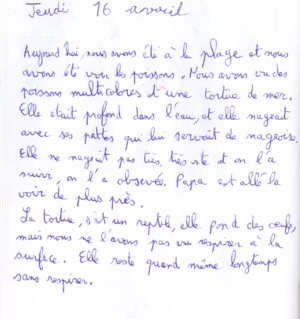 Jeudi 16 avveil
Aujourd'hui, nous avons été à la plage et nous
avons été voir les poissons. Nous avons vu des
poissons multicolores et une tortue de mer.
Elle etait profond dans l'eau, et elle nageait
avec ses pattes qui lui servait de nageoire.
Elle ne nageait pas très, très vite et on l'a
suivi, on l'a observée. Papa est allé la
voir de plus près.
La tortue, s'est un reptile, elle pond des oeufs,
mais nous ne l'avons pas vu respirer à la
surface. Elle reste quand même longtemps
sans respirer.